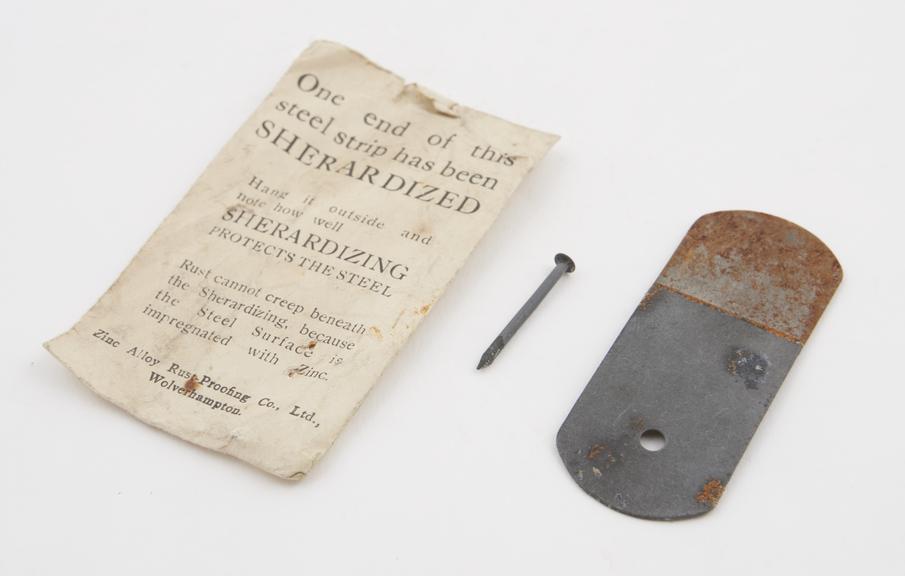 One end of this
steel strip has been
SHERARDIZED
Hang it outside and
note how well
SHERARDIZING
PROTECTS THE STEEL
Rust cannot creep beneath
the Sherardizing, because
the Steel Surface is
impregnated with Zinc.
Zinc Alloy Rust-Proofing Co., Ltd.,
Wolverhampton.